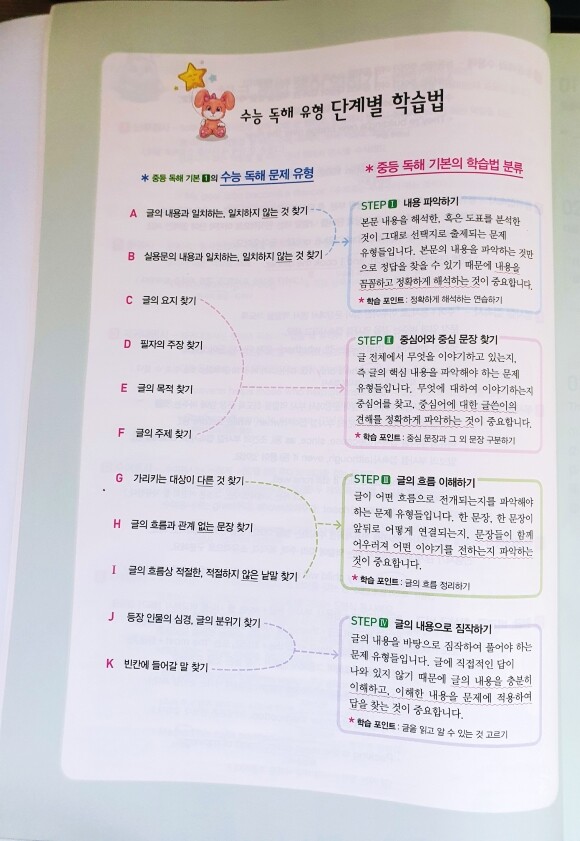 수능 독해 유형 단계별 학습법
* 중등 독해 기본 1의 수능 독해 문제 유형
A 글의 내용과 일치하는, 일치하지 않는 것 찾기
B 실용문의 내용과 일치하는, 일치하지 않는 것 찾기
C 글의 요지 찾기
D 필자의 주장 찾기
E 글의 목적 찾기
F 글의 주제 찾기
G 가리키는 대상이 다른 것 찾기
H 글의 흐름과 관계 없는 문장 찾기
I 글의 흐름상 적절한, 적절하지 않은 낱말 찾기
J 등장 인물의 심경, 글의 분위기 찾기
K 빈칸에 들어갈 말 찾기
* 중등 독해 기본의 학습법 분류
STEP Ⅰ 내용 파악하기
본문 내용을 해석한, 혹은 도표를 분석한
것이 그대로 선택지로 출제되는 문제
유형들입니다. 본문의 내용을 파악하는 것만
으로 정답을 찾을 수 있기 때문에 내용을
꼼꼼하고 정확하게 해석하는 것이 중요합니다.
* 학습 포인트 : 정확하게 해석하는 연습하기
STEP Ⅱ 중심어와 중심 문장 찾기
글 전체에서 무엇을 이야기하고 있는지,
즉 글의 핵심 내용을 파악해야 하는 문제
유형들입니다. 무엇에 대하여 이야기하는지
중심어를 찾고, 중심어에 대한 글쓴이의
견해를 정확하게 파악하는 것이 중요합니다.
* 학습 포인트 : 중심 문장과 그 외 문장 구분하기
STEP Ⅲ 글의 흐름 이해하기
글이 어떤 흐름으로 전개되는지를 파악해야
하는 문제 유형들입니다. 한 문장, 한 문장이
앞뒤로 어떻게 연결되는지, 문장들이 함께
어우러져 어떤 이야기를 전하는지 파악하는
것이 중요합니다.
* 학습 포인트 : 글의 흐름 정리하기
STEP Ⅳ 글의 내용으로 짐작하기
글의 내용을 바탕으로 짐작하여 풀어야 하는
문제 유형들입니다. 글에 직접적인 답이
나와 있지 않기 때문에 글의 내용을 충분히
이해하고, 이해한 내용을 문제에 적용하여
답을 찾는 것이 중요합니다.
* 학습 포인트 : 글을 읽고 알 수 있는 것 고르기